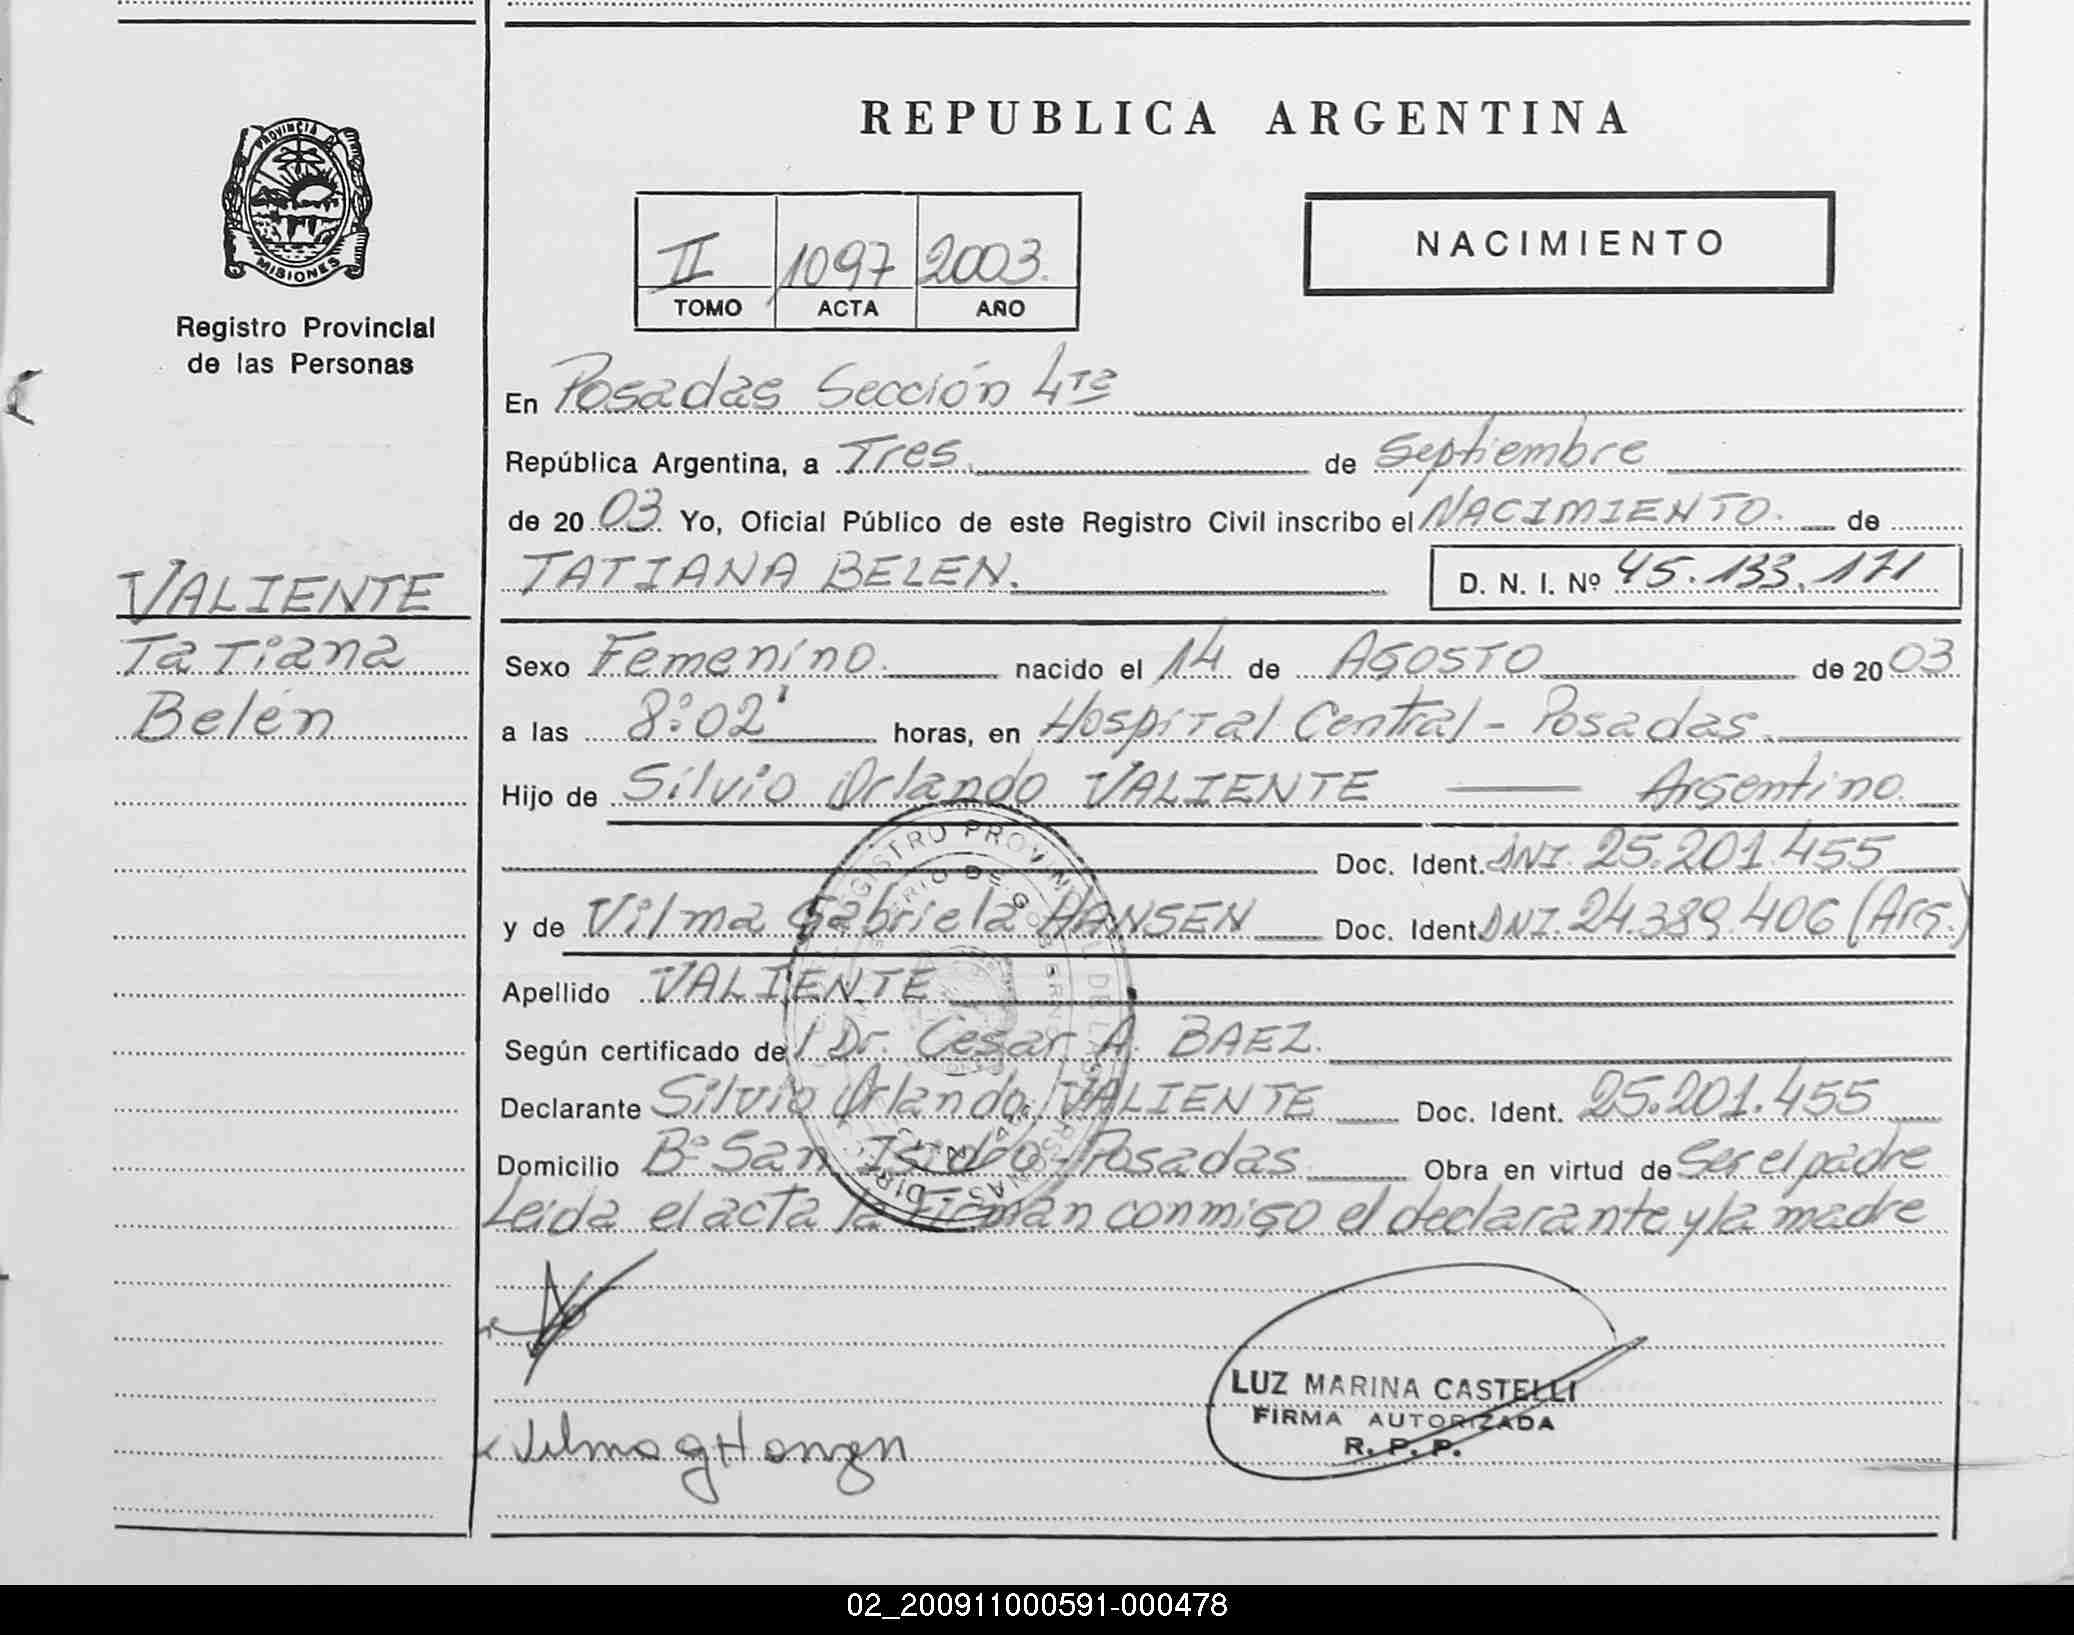 REPUBLICA ARGENTINA
PROVINCIA DE
MISIONES
Registro Provincial
de las Personas
II 1097 2003.
TOMO ACTA AÑO
NACIMIENTO
En Posadas Sección 4ta
República Argentina, a Tres. de Septiembre
de 20 03 Yo, Oficial Público de este Registro Civil inscribo el NACIMIENTO. de
VALIENTE
Tatiana
Belén
TATIANA BELEN. D. N. I. Nº 45.133.171
Sexo Femenino. nacido el 14 de AGOSTO de 20 03
a las 8:02' horas, en Hospital Central - Posadas.
Hijo de Silvio Orlando VALIENTE — Argentino.
Doc. Ident. DNI. 25.201.455
y de Vilma Gabriela HANSEN Doc. Ident. DNI. 24.389.406 (Arg.)
Apellido VALIENTE
Según certificado de Dr. Cesar A. BAEZ.
Declarante Silvio Orlando VALIENTE Doc. Ident. 25.201.455
Domicilio Bº San Isidro - Posadas Obra en virtud de Ser el padre
Leida el acta la firman conmigo el declarante y la madre
LUZ MARINA CASTELLI
FIRMA AUTORIZADA
R. P. P.
02_200911000591-000478